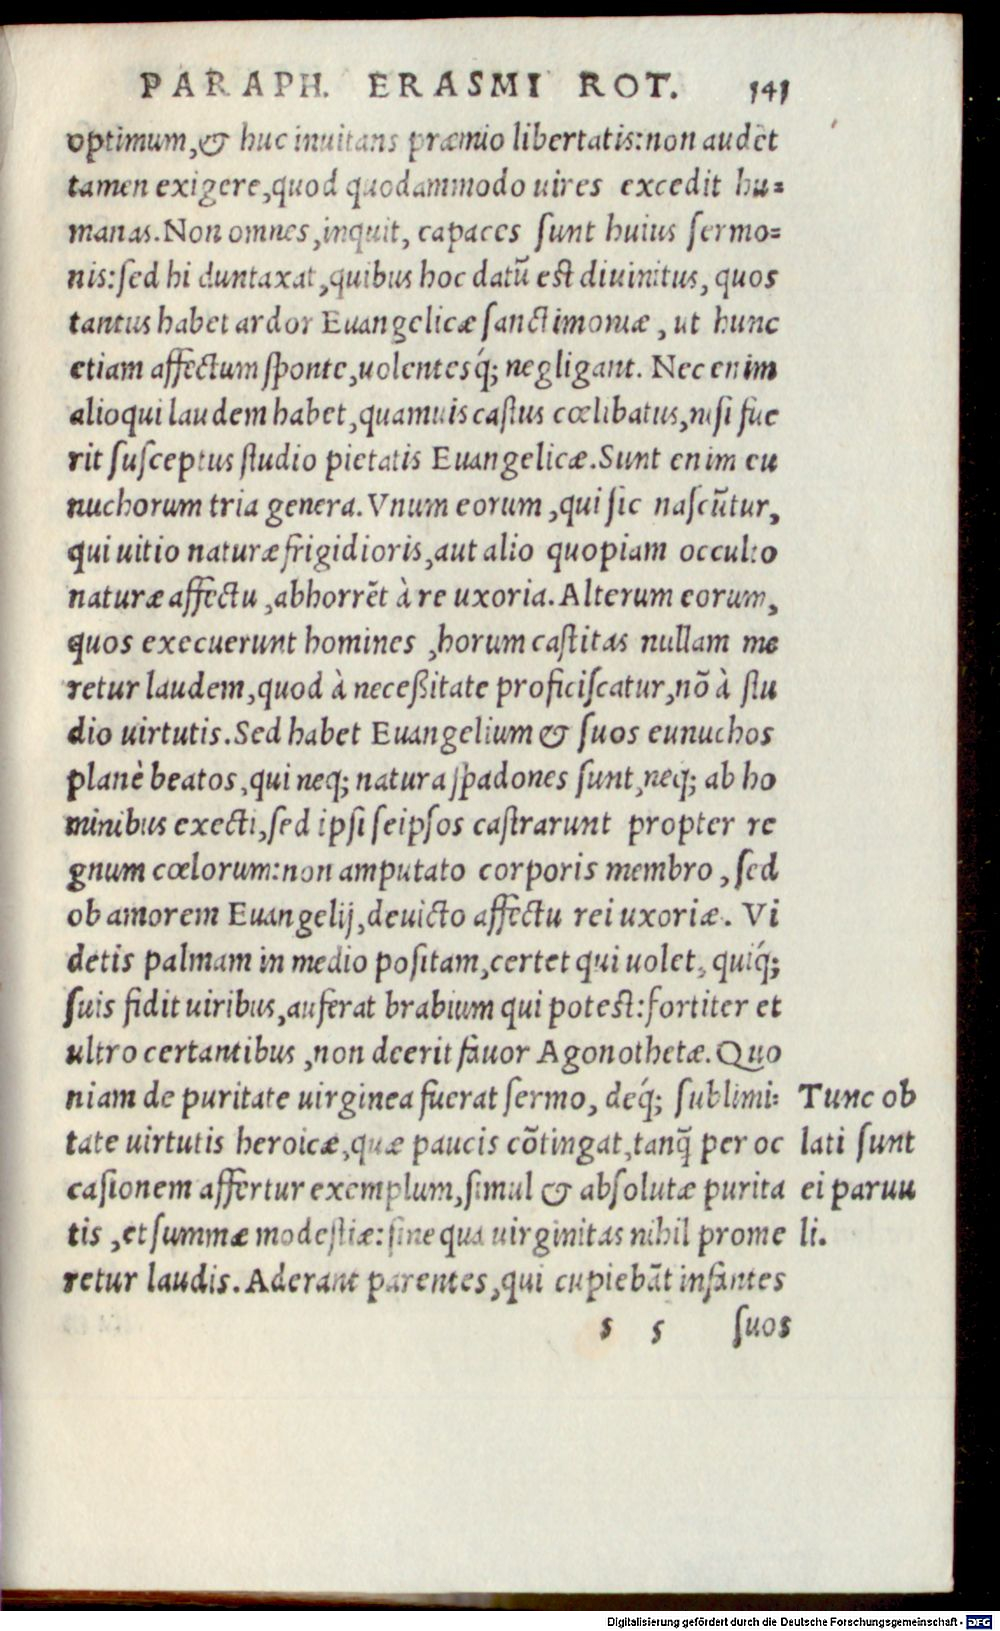 PARAPH. ERASMI ROT. 141
optimum,& huc inuitans præmio libertatis:non audēt
tamen exigere,quod quodammodo uires excedit hu=
manas.Non omnes,inquit, capaces ſunt huius ſermo=
nis:ſed hi duntaxat,quibus hoc datū eſt diuinitus, quos
tantus habet ardor Euangelicæ ſanctimoniæ, ut hunc
etiam affectum ſponte,uolentesq́; negligant. Nec enim
alioqui laudem habet,quamuis caſtus cœlibatus,niſi fue
rit ſuſceptus ſtudio pietatis Euangelicæ.Sunt enim eu
nuchorum tria genera.Vnum eorum,qui ſic naſcūtur,
qui uitio naturæ frigidioris,aut alio quopiam occulto
naturæ affectu,abhorrēt à re uxoria.Alterum eorum,
quos execuerunt homines,horum caſtitas nullam me
retur laudem,quod à neceßitate proficiſcatur,nō à ſtu
dio uirtutis.Sed habet Euangelium & ſuos eunuchos
planè beatos,qui neq; natura ſpadones ſunt,neq; ab ho
minibus execti,ſed ipſi ſeipſos caſtrarunt propter re
gnum cœlorum:non amputato corporis membro, ſed
ob amorem Euangelij,deuicto affectu rei uxoriæ. Vi
detis palmam in medio poſitam,certet qui uolet, quiq́;
ſuis fidit uiribus,auferat brabium qui poteſt:fortiter et
ultro certantibus,non deerit fauor Agonothetæ.Quo
niam de puritate uirginea fuerat ſermo, deq́; ſublimi=
tate uirtutis heroicæ,quæ paucis cōtingat,tanq̄ per oc
caſionem affertur exemplum,ſimul & abſolutæ purita
tis,et ſummæ modeſtiæ:ſine qua uirginitas nihil prome
retur laudis.Aderant parentes,qui cupiebāt infantes
Tunc ob
lati ſunt
ei paruu
li.
s 5 ſuos
Digitalisierung gefördert durch die Deutsche Forschungsgemeinschaft - DFG